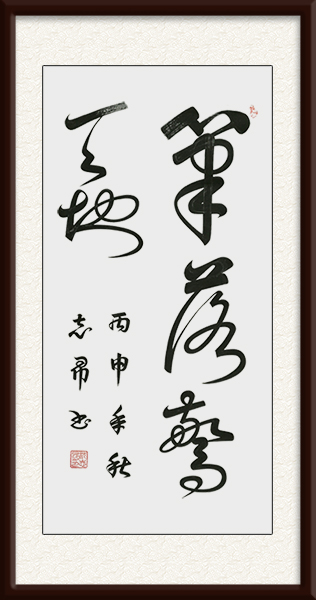 筆落驚
天地
丙申年秋
志昂书